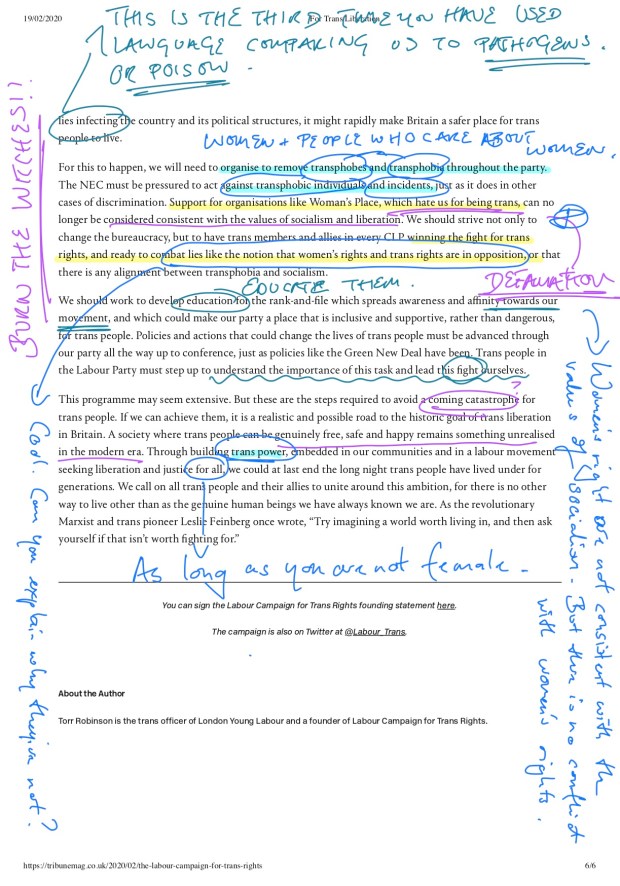 19/02/2020
For Trans Liberation
THIS IS THE THIRD TIME YOU HAVE USED
LANGUAGE COMPARING US TO PATHOGENS.
OR POISON.
BURN THE WITCHES!!
lies infecting the country and its political structures, it might rapidly make Britain a safer place for trans
people to live.
WOMEN + PEOPLE WHO CARE ABOUT
WOMEN.
For this to happen, we will need to organise to remove transphobes and transphobia throughout the party.
The NEC must be pressured to act against transphobic individuals and incidents, just as it does in other
cases of discrimination. Support for organisations like Woman's Place, which hate us for being trans, can no
longer be considered consistent with the values of socialism and liberation. We should strive not only to
change the bureaucracy, but to have trans members and allies in every CLP winning the fight for trans
rights, and ready to combat lies like the notion that women's rights and trans rights are in opposition, or that
there is any alignment between transphobia and socialism.
DEFAMATION
EDUCATE THEM.
We should work to develop education for the rank-and-file which spreads awareness and affinity towards our
movement, and which could make our party a place that is inclusive and supportive, rather than dangerous,
for trans people. Policies and actions that could change the lives of trans people must be advanced through
our party all the way up to conference, just as policies like the Green New Deal have been. Trans people in
the Labour Party must step up to understand the importance of this task and lead this fight ourselves.
?
This programme may seem extensive. But these are the steps required to avoid a coming catastrophe for
trans people. If we can achieve them, it is a realistic and possible road to the historic goal of trans liberation
in Britain. A society where trans people can be genuinely free, safe and happy remains something unrealised
in the modern era. Through building trans power, embedded in our communities and in a labour movement
seeking liberation and justice for all, we could at last end the long night trans people have lived under for
generations. We call on all trans people and their allies to unite around this ambition, for there is no other
way to live other than as the genuine human beings we have always known we are. As the revolutionary
Marxist and trans pioneer Leslie Feinberg once wrote, "Try imagining a world worth living in, and then ask
yourself if that isn't worth fighting for."
As long as you are not female.
Cool. Can you explain why they're not?
Women's right are not consistent with the
values of socialism. But there is no conflict
with women's rights.
You can sign the Labour Campaign for Trans Rights founding statement here.
The campaign is also on Twitter at @Labour_Trans.
About the Author
Torr Robinson is the trans officer of London Young Labour and a founder of Labour Campaign for Trans Rights.
https://tribunemag.co.uk/2020/02/the-labour-campaign-for-trans-rights
6/6